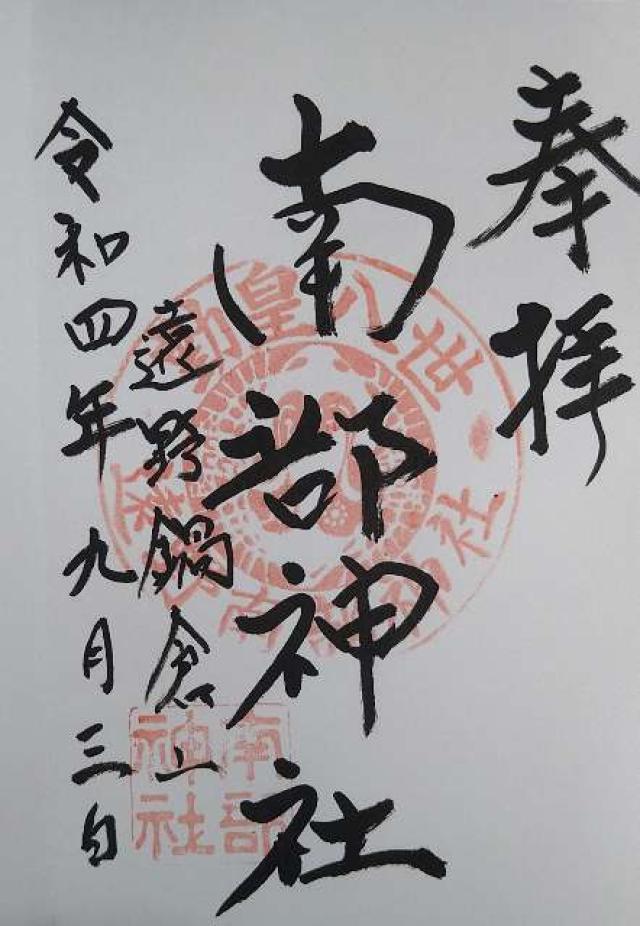 奉拝
南部神社
遠野鍋倉山
令和四年九月三日
勤皇八世
南部神社
南部
神社